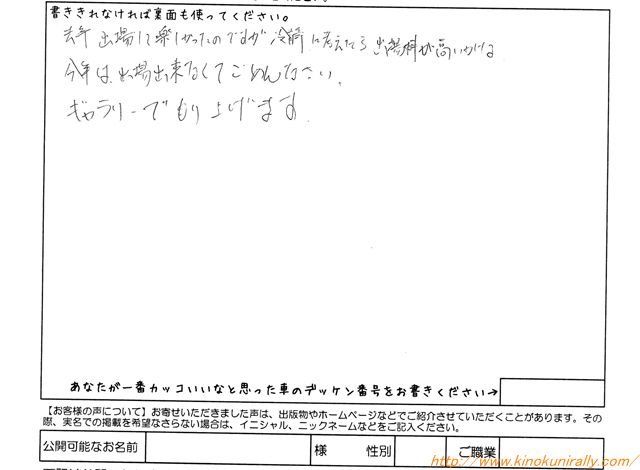 書ききれなければ裏面も使ってください。
去年 出場して楽しかったのですが 冷静に考えたら 出場料が高いかな
今年は出場出来なくてごめんなさい。
ギャラリーでもり上げます
あなたが一番カッコいいなと思った車のデッケン番号をお書きください→
【お客様の声について】お寄せいただきました声は、出版物やホームページなどでご紹介させていただくことがあります。その
際、実名での掲載を希望なさらない場合は、イニシャル、ニックネームなどをご記入ください。
公開可能なお名前 様 性別 ご職業
http://www.kinokunirally.com/